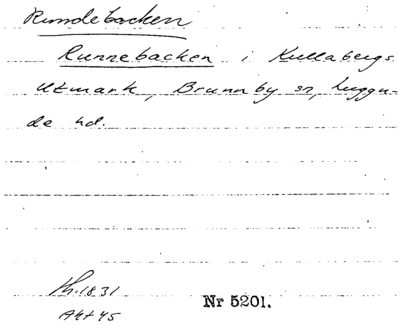 Rundebacken
Runnebacken i Kullabergs
utmark, Brunnby sn, Luggu-
de hd.
Kh. 1831
Akt 45
Nr 5201.